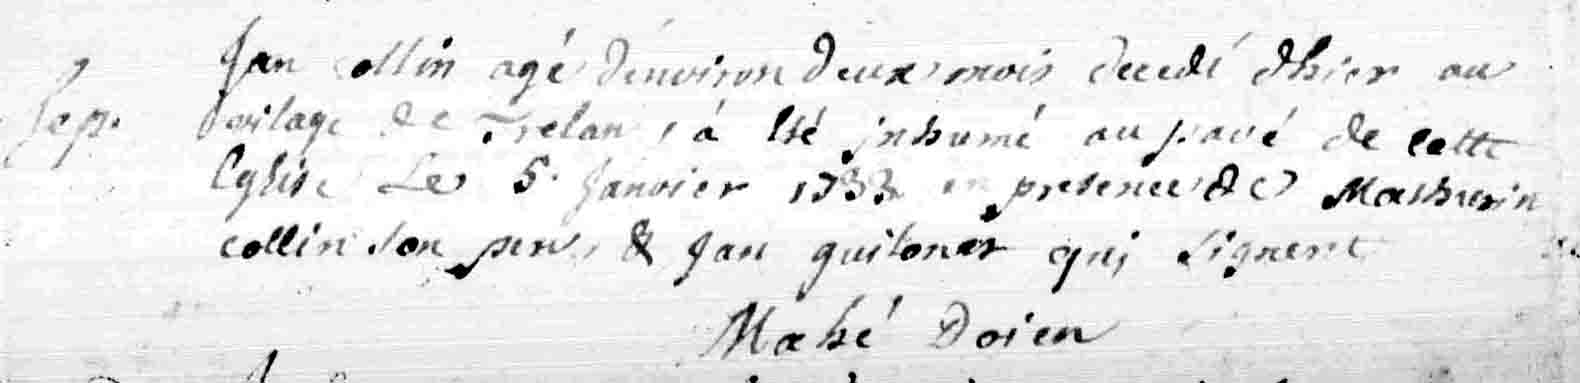 Jan collin agé d'environ deux mois decedé d'hier au
Sep. vilage de Trelan, à Eté inhumé au pavé de cette
Eglise Le 5. Janvier 1733 en presence de Mathurin
collin son pere, & Jan guitoner qui signent
Mahé Doien